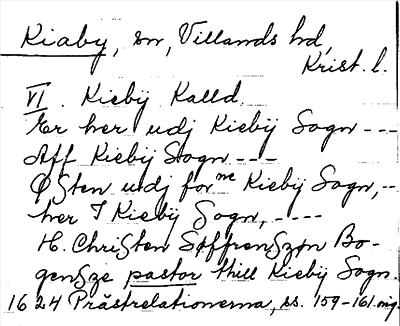 Kiaby, sn, Villands hd,
Krist. l.
VI. Kiebÿ Kalld.
Er her udj Kiebÿ Sogn ---
Aff Kiebÿ Sogn ---
Østen udj for.me Kiebÿ Sogn,--
her I Kiebÿ Sogn, ----
H. Christen Søffrenszøn Bo-
gensze pastor thill Kiebÿ Sogn.
1624 Prästrelationerna, ss. 159-161. orig.